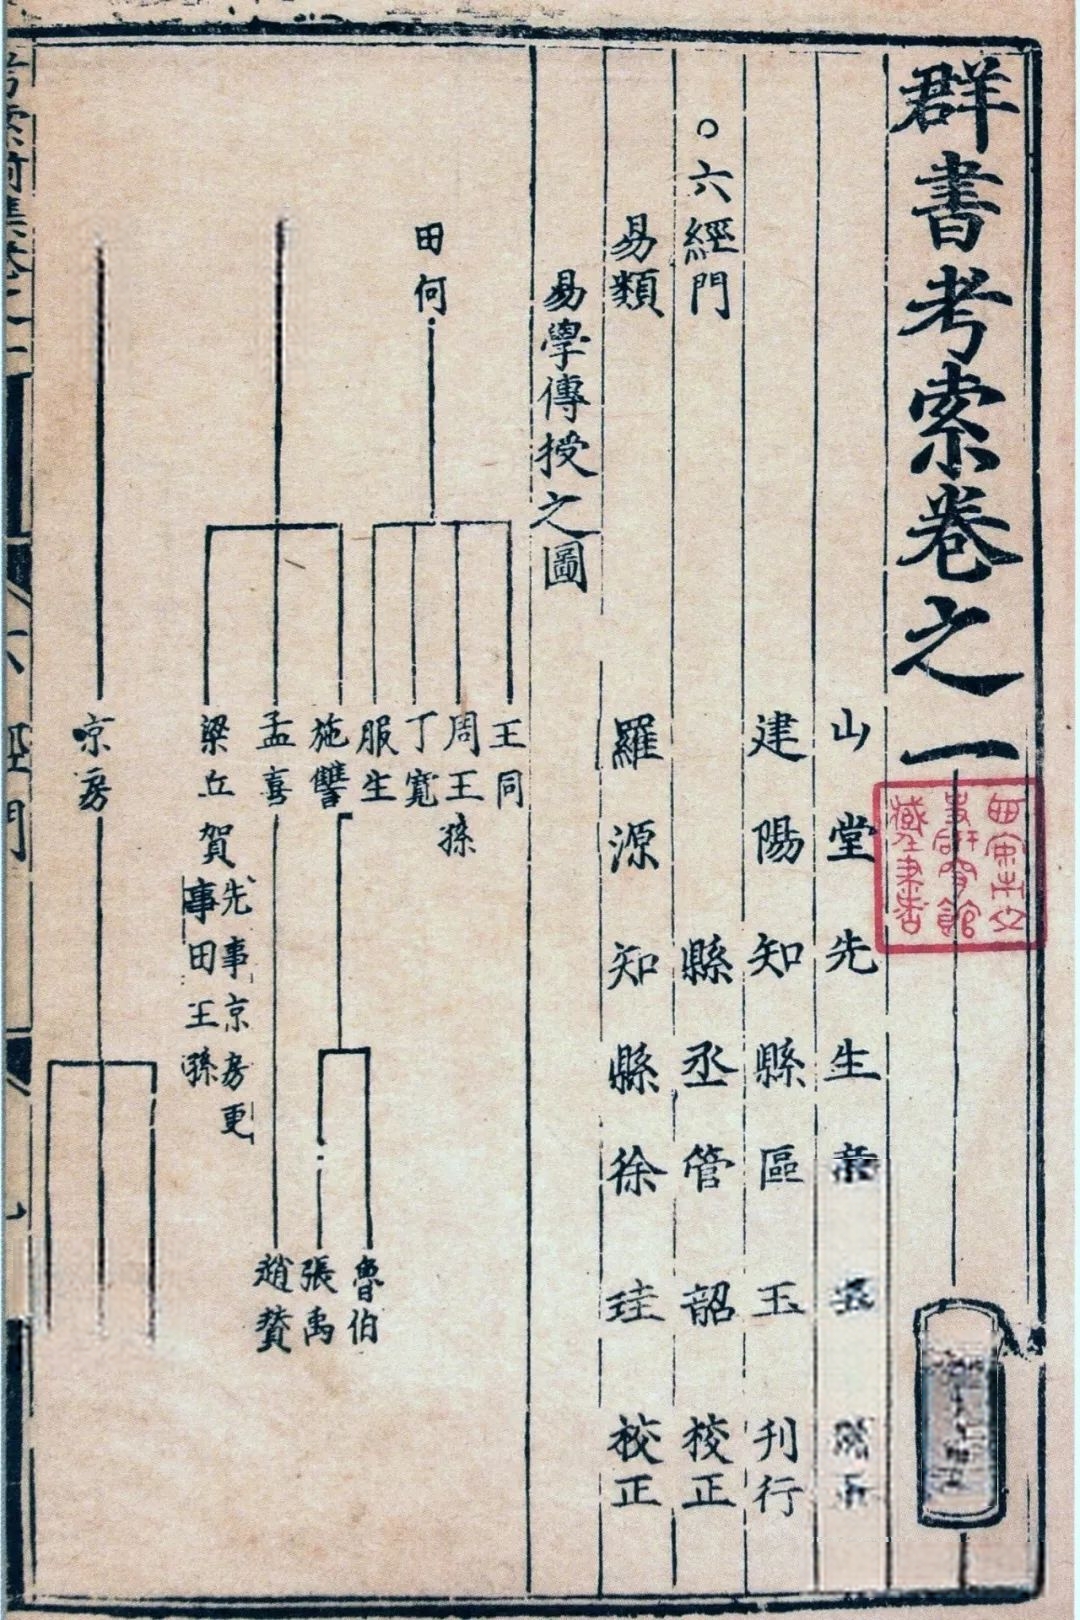 群書考索卷之一
山堂先生
建陽知縣區玉刊行
縣丞管韶校正
羅源知縣徐珪校正
○六經門
易類
易學傳授之圖
田何
王同
周王孫
丁寬
服生
施讐
孟喜
梁丘賀
先事京房更
事田王孫
京房
魯伯
張禹
趙賛
六經門